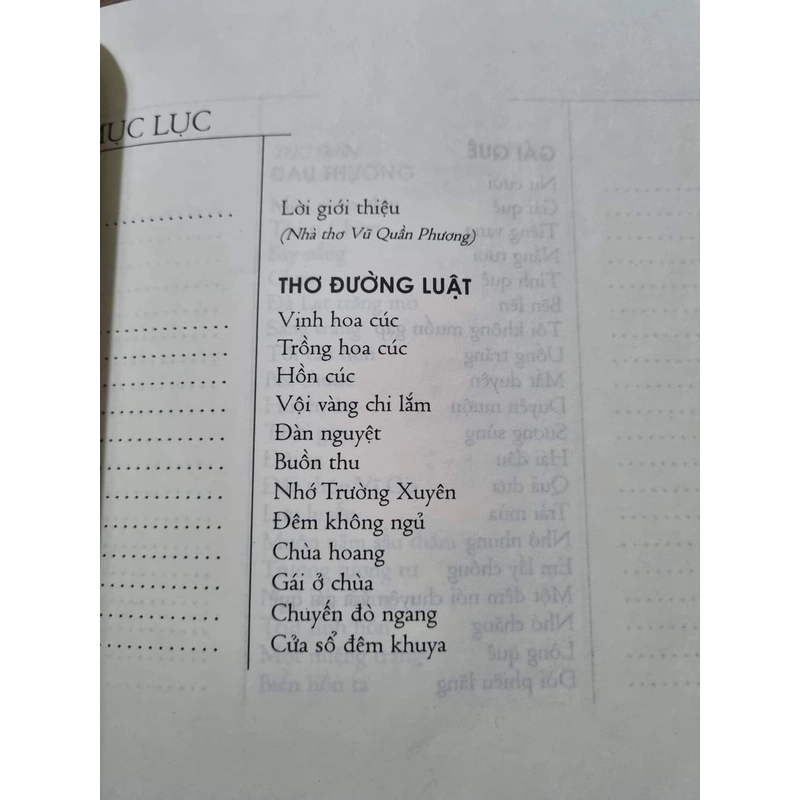 MỤC LỤC
Lời giới thiệu
(Nhà thơ Vũ Quần Phương)
THƠ ĐƯỜNG LUẬT
Vịnh hoa cúc
Trồng hoa cúc
Hồn cúc
Vội vàng chi lắm
Đàn nguyệt
Buồn thu
Nhớ Trường Xuyên
Đêm không ngủ
Chùa hoang
Gái ở chùa
Chuyến đò ngang
Cửa sổ đêm khuya